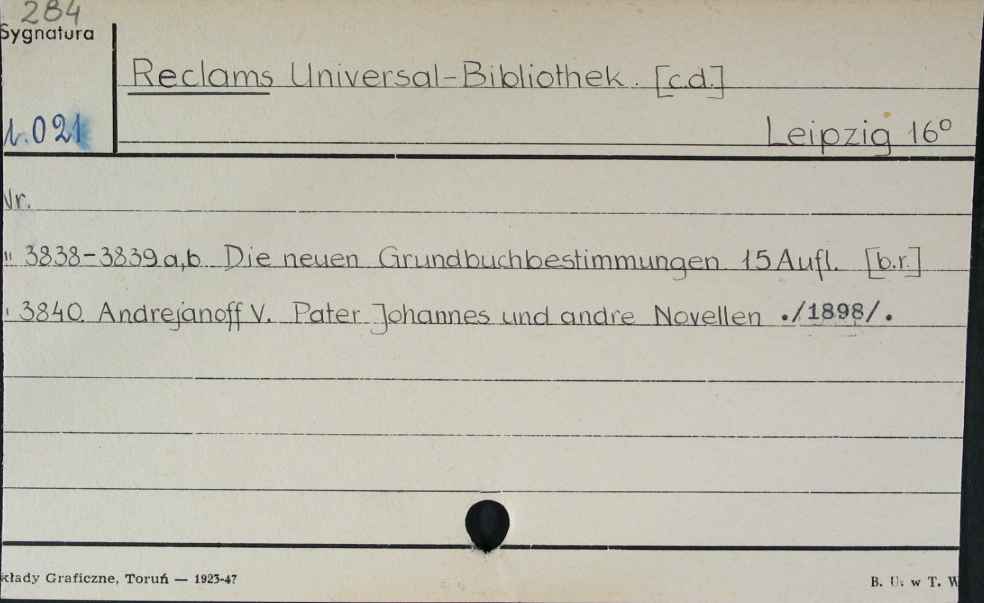 284
Sygnatura
Reclams Universal-Bibliothek. [c.d.]
1.021
Leipzig 16°
Nr.
" 3838-3839 a,b Die neuen Grundbuchbestimmungen 15 Aufl. [b.r.]
" 3840 Andrejanoff V. Pater Johannes und andre Novellen ./1898/.
kłady Graficzne, Toruń — 1923-47
B. U. w T. W